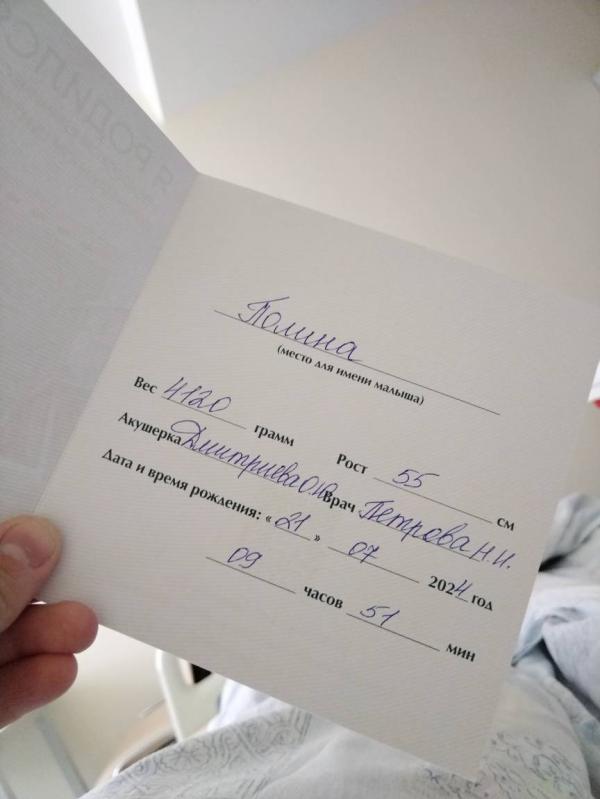 Я РОДИЛС
Полина
(место для имени малыша)
Вес 4120 грамм Рост 55 см
Акушерка Дмитриева О.Ю. Врач Петрова Н.И.
Дата и время рождения: « 21 » 07 2024 год
09 часов 51 мин